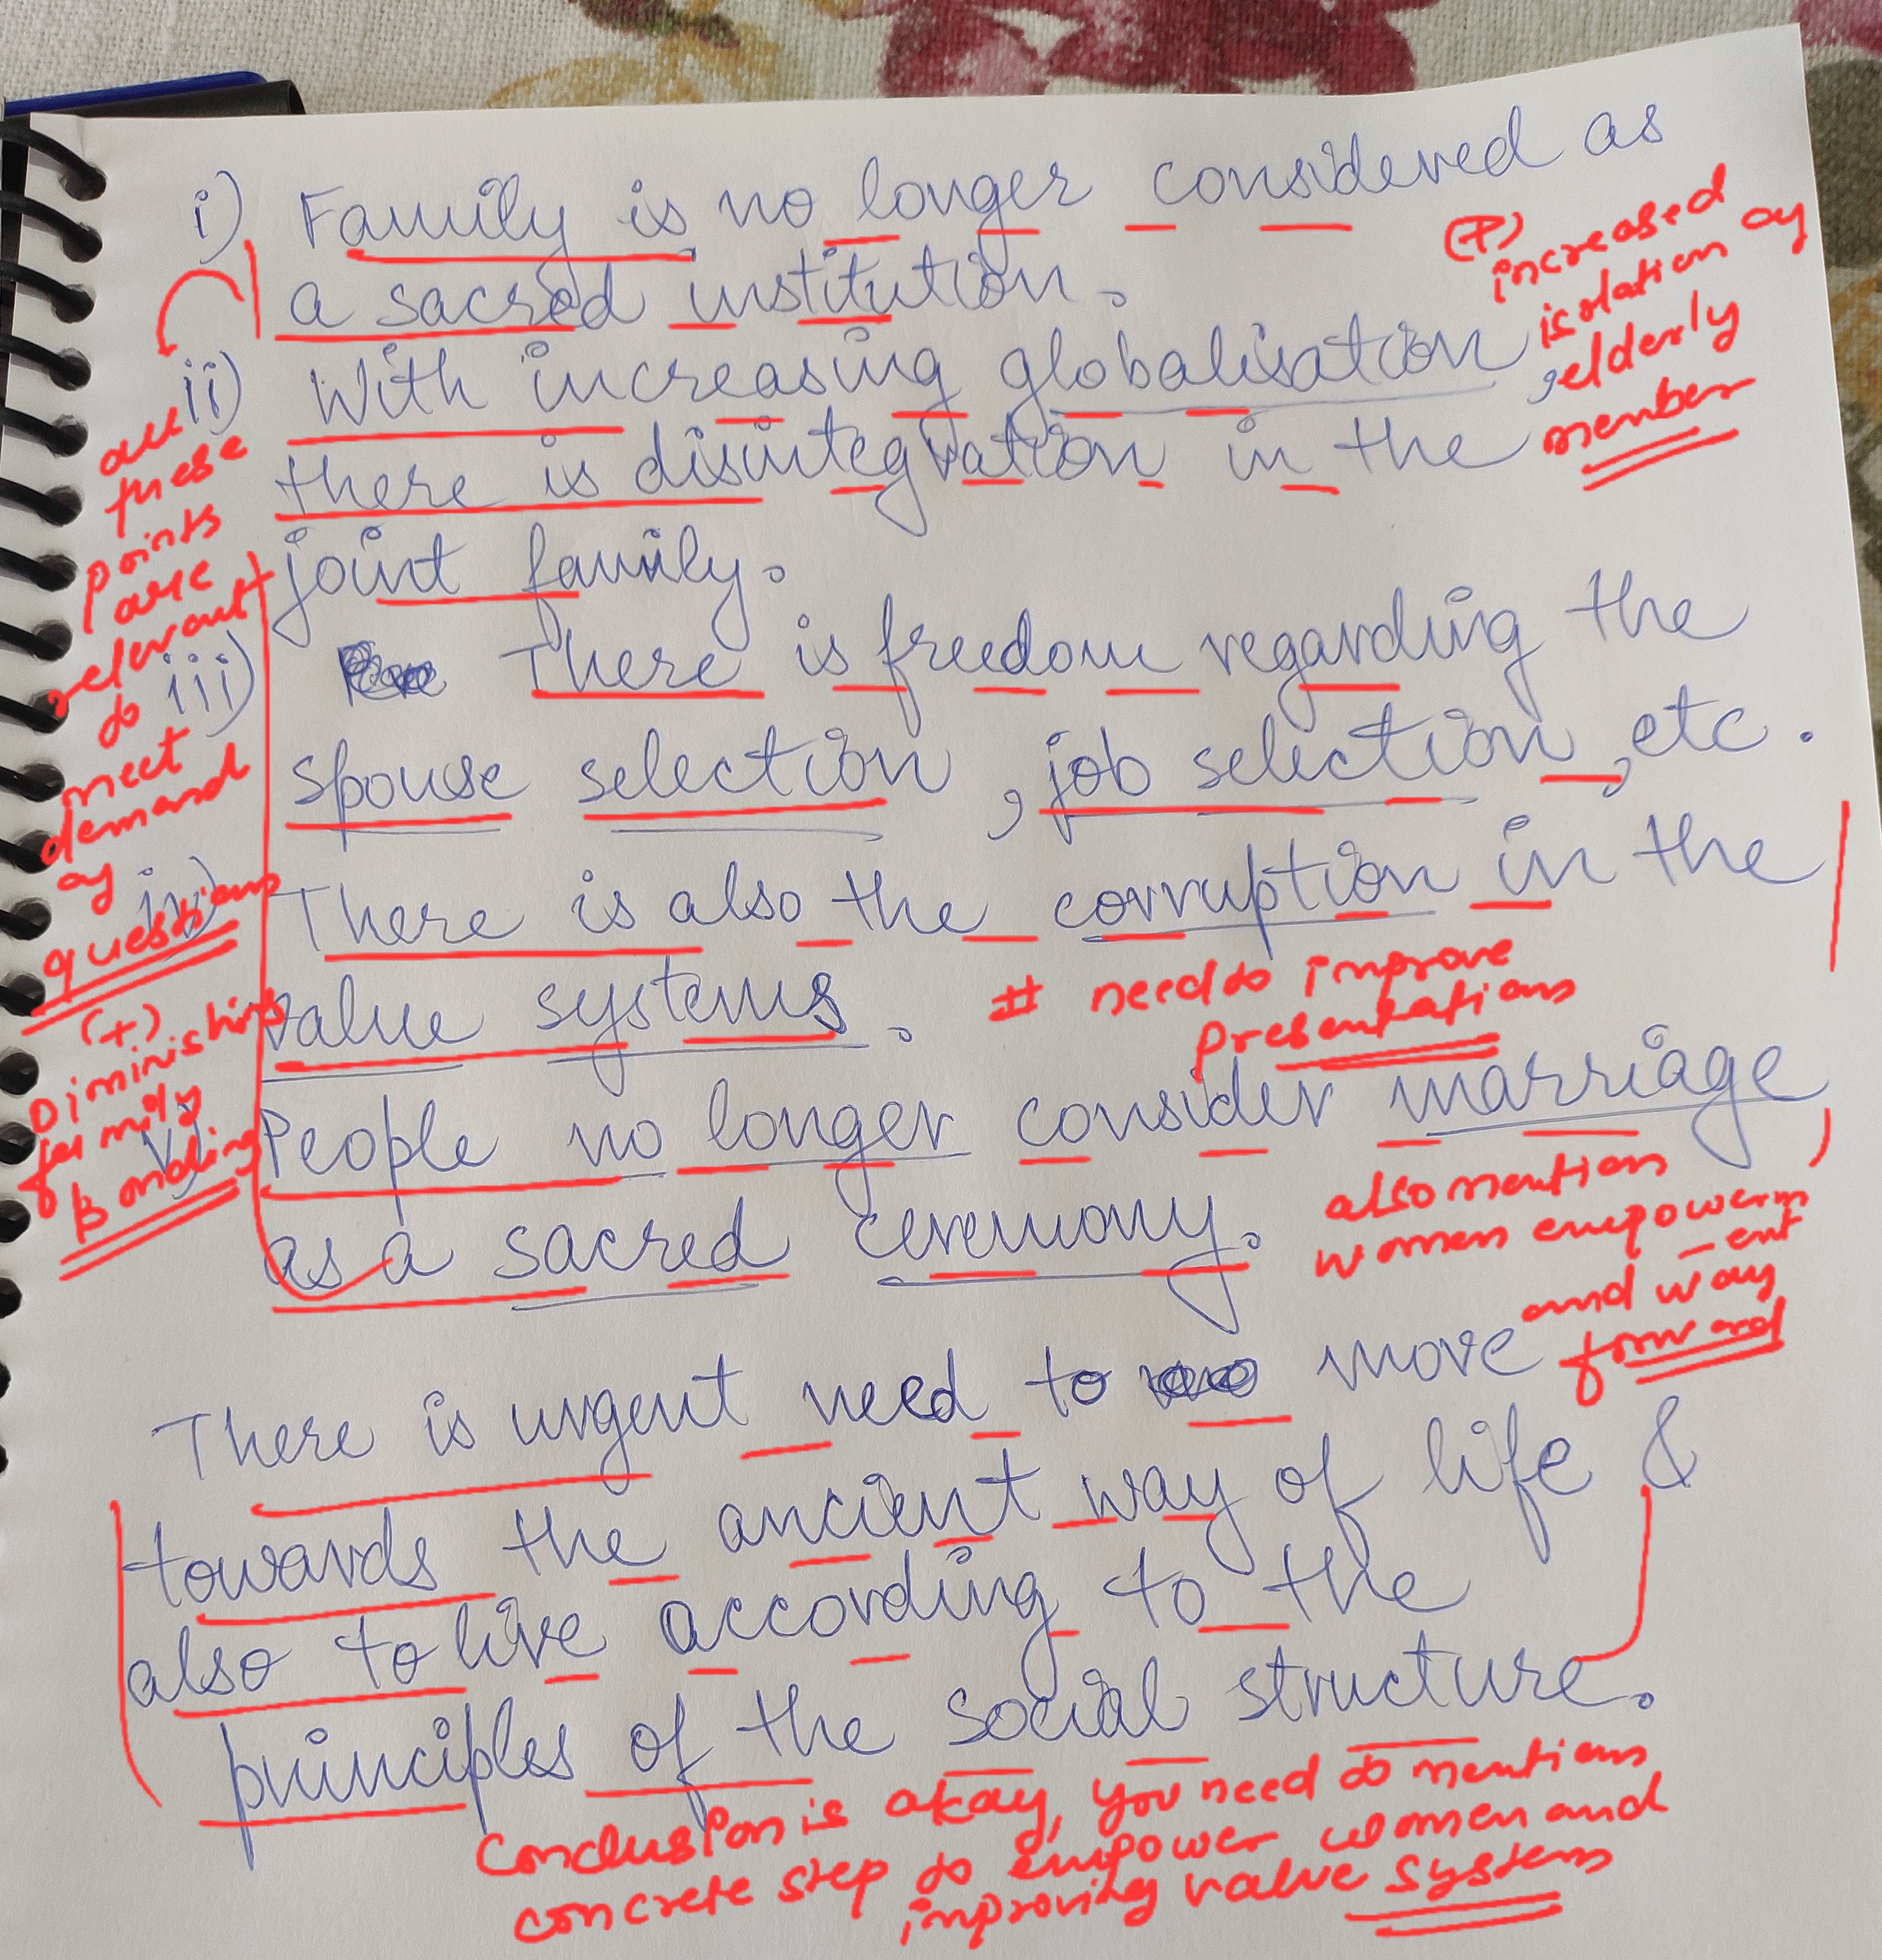 i) Family is no longer considered as
a sacred institution.
ii) With increasing globalisation,
there is disintegration in the
joint family.
iii) There is freedom regarding the
spouse selection, job selection, etc.
iv) There is also the corruption in the
value systems.
v) People no longer consider marriage
as a sacred ceremony.
There is urgent need to move
towards the ancient way of life &
also to live according to the
principles of the social structure.
(+)
increased
isolation of
elderly
member
all
these
points
are
relevant
to
meet
demand
of
questions
(+)
Diminishing
family
Bonding
# need to improve
presentations
also mention
women empowerm
-ent
and way
forward
Conclusion is okay, you need to mentions
concrete step to empower women and
improving value systems